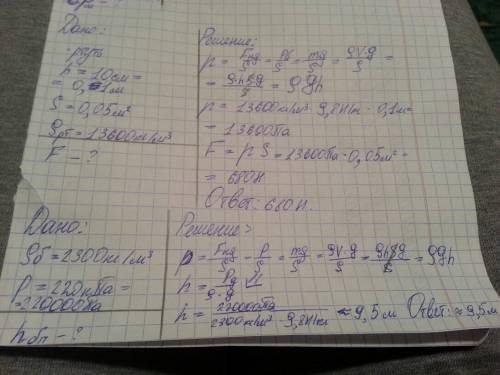 Дано:
ртуть
h = 10см =
= 0,1м
S = 0,05м²
ρрт = 13600кг/м³
F - ?
Решение:
p = Fнд/S = P/S = mg/S = ρV·g/S =
= ρhSg/S = ρgh
p = 13600кг/м³ · 9,8Н/кг · 0,1м =
= 13600Па
F = pS = 13600Па · 0,05м² =
= 680Н.
Ответ: 680Н.
Дано:
ρб = 2300кг/м³
P = 220кПа =
= 220000Па
hбт - ?
Решение:
p = Fнд/S = P/S = mg/S = ρV·g/S = ρhSg/S = ρgh
h =
h = 22000Па/2300кг/м³ · 9,8Н/кг ≈ 9,5м Ответ: ≈ 9,5м